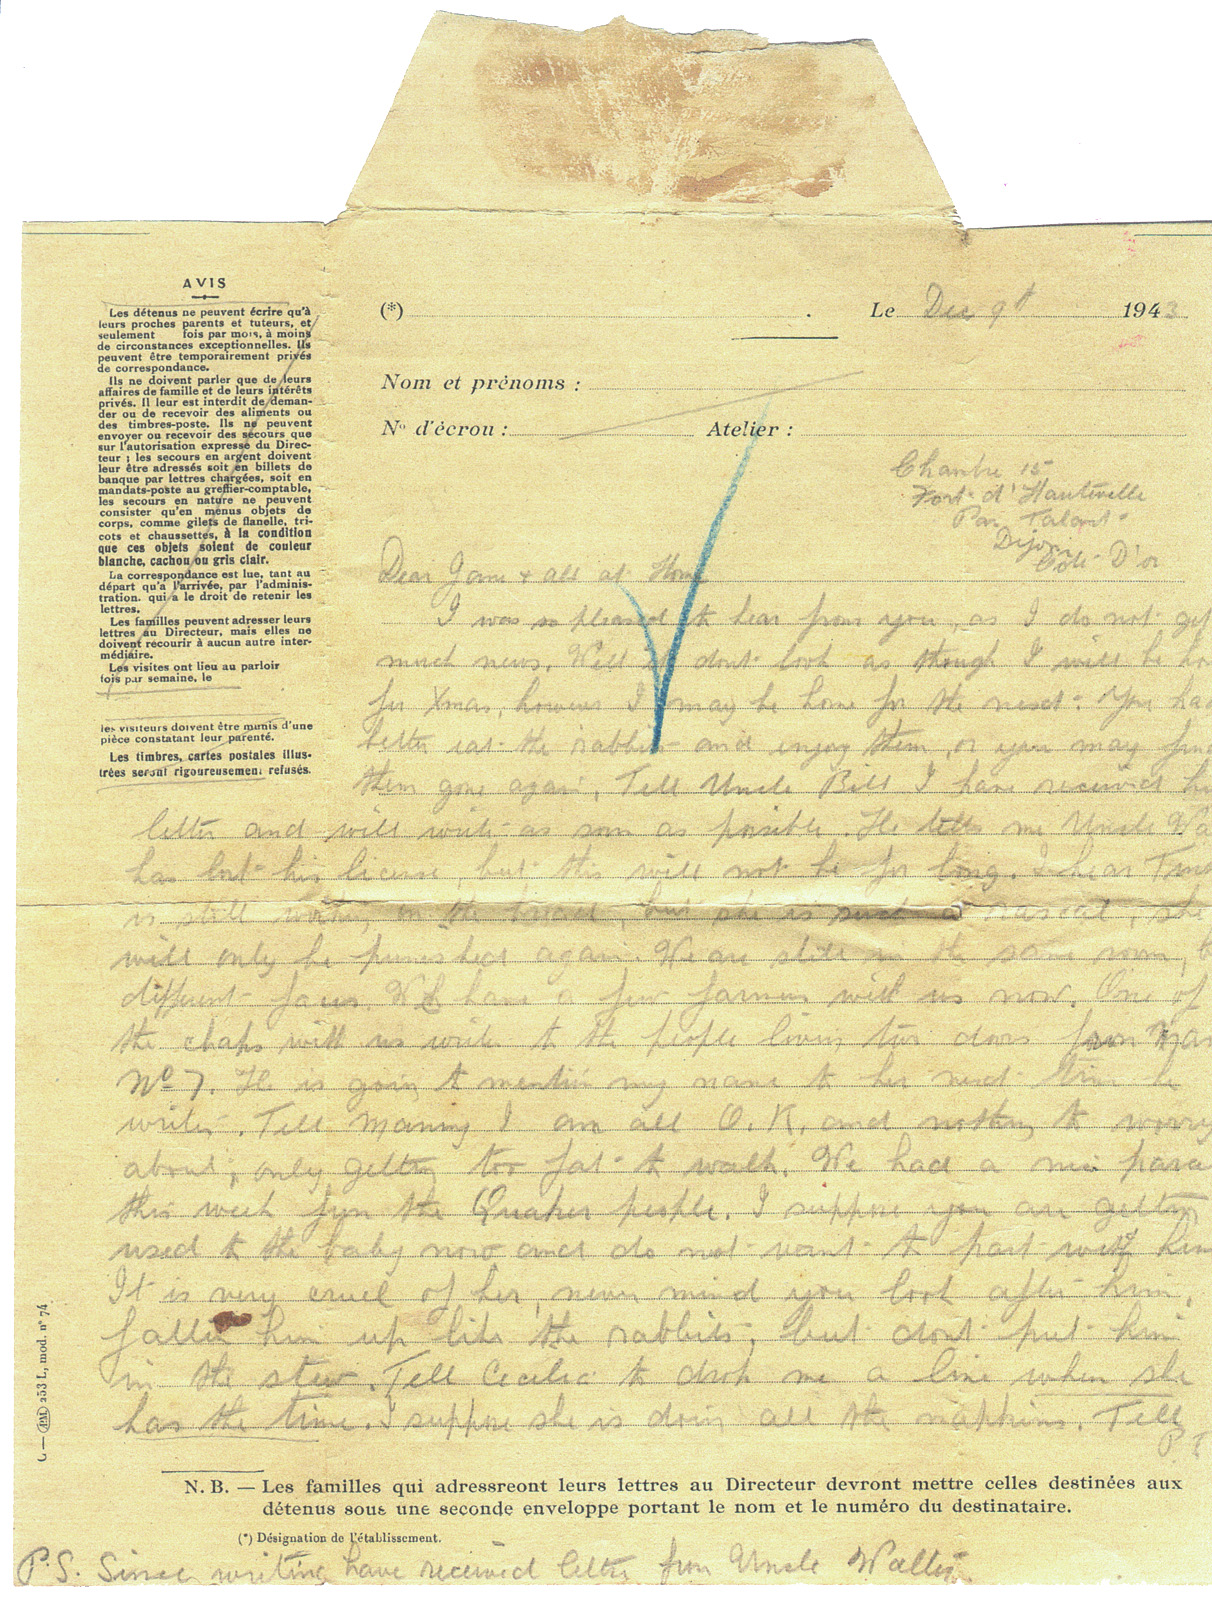 AVIS
Les détenus ne peuvent écrire qu'à
leurs proches parents et tuteurs, et
seulement fois par mois, à moins
de circonstances exceptionnelles. Ils
peuvent être temporairement privés
de correspondance.
Ils ne doivent parler que de leurs
affaires de famille et de leurs intérêts
privés. Il leur est interdit de deman-
der ou de recevoir des aliments ou
des timbres-poste. Ils ne peuvent
envoyer ou recevoir des secours que
sur l'autorisation expresse du Direc-
teur ; les secours en argent doivent
leur être adressés soit en billets de
banque par lettres chargées, soit en
mandats-poste au greffier-comptable,
les secours en nature ne peuvent
consister qu'en menus objets de
corps, comme gilets de flanelle, tri-
cots et chaussettes, à la condition
que ces objets soient de couleur
blanche, cachou ou gris clair.
La correspondance est lue, tant au
départ qu'à l'arrivée, par l'adminis-
tration. qui a le droit de retenir les
lettres.
Les familles peuvent adresser leurs
lettres au Directeur, mais elles ne
doivent recourir à aucun autre inter-
médiaire.
Les visites ont lieu au parloir
fois par semaine, le
les visiteurs doivent être munis d'une
pièce constatant leur parenté.
Les timbres, cartes postales illus-
trées seront rigoureusement refusés.
(*) . Le Dec 9th 1943
Nom et prénoms :
No d'écrou : Atelier :
Chambre 15
Fort d'Hauteville
Par Talant
Dijon
Côte D'or
Dear Jane + all at Home
I was so pleased to hear from you, as I do not get
much news. Well it dont look as though I will be ho
for Xmas, however I may be home for the next. You had
better eat the rabbits and enjoy them, or you may find
them gone again. Tell Uncle Bill I have received his
letter and will write as soon as possible. He tells me Uncle Wa
has lost his license, but this will not be for long. I hear
is still in the bread, but she is such a rascal, she
will only be punished again. We are still in the same room, b
different faces. We have a few farmers with us now. One of
the chaps with us writes to the people living two doors from
No 7. He is going to mention my name to her next time he
writes. Tell Mammy I am all O.K. and nothing to worry
about, only getting too fat to walk. We had a nice parce
this week from the Quaker people. I suppose you are getting
used to the baby now and do not want to part with him
It is very cruel of her, never mind you look after him,
fatten him up like the rabbits, but dont put him
in the stew. Tell Cecilia to drop me a line when she
has the time. I suppose she is doing all the napkins. Tell
P.T
N. B. — Les familles qui adressreont leurs lettres au Directeur devront mettre celles destinées aux
détenus sous une seconde enveloppe portant le nom et le numéro du destinataire.
(*) Désignation de l'établissement.
P.S. Since writing have received letter from Uncle Walter
253 L, mod. n° 74.